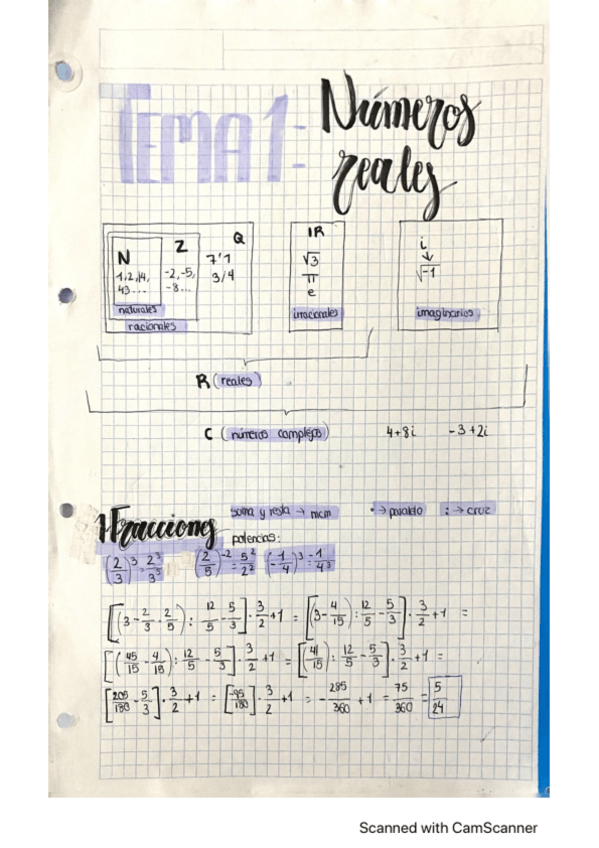 TEMA 1: Números
reales
N Z Q
1,2,14, -2,-5, 7'1
43... -8... 3/4
naturales
racionales
IR
√3
π
e
irracionales
i
↓
√-1
imaginarios
R (reales)
C (números complejos) 4+8i -3+2i
1. Fracciones suma y resta → mcm · → paralelo : → cruz
potencias:
(2/3)³ = 2³/3³ (2/5)⁻² = 5²/2² (-1/4)³ = -1/4³
[(3 - 2/3 · 2/5) : 12/5 - 5/3] · 3/2 + 1 = [(3 - 4/15) : 12/5 - 5/3] · 3/2 + 1 =
[(45/15 - 4/15) : 12/5 - 5/3] · 3/2 + 1 = [(41/15) : 12/5 - 5/3] · 3/2 + 1 =
[205/180 - 5/3] · 3/2 + 1 = [-95/180] · 3/2 + 1 = - 285/360 + 1 = 75/360 = 5/24
Scanned with CamScanner